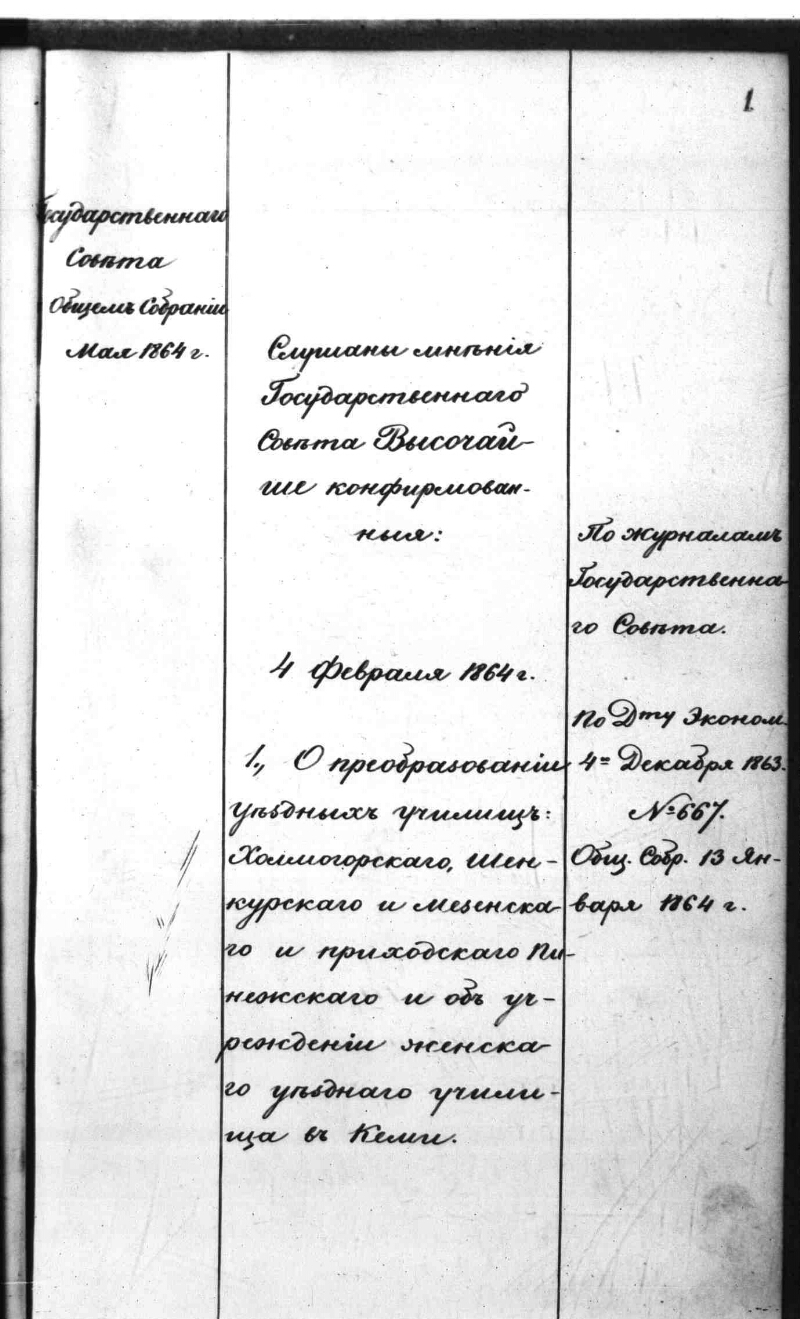 1
Государственнаго
Совѣта
Общемъ Собраніи
Мая 1864 г.
Слушаны мнѣнія
Государственнаго
Совѣта Высочай-
ше конфирмован-
ныя:
4 Февраля 1864 г.
1., О преобразованіи
уѣздныхъ училищъ:
Холмогорскаго, Шен-
курскаго и Мезенска-
го и приходскаго Пи-
нежскаго и объ уч-
режденіи женска-
го уѣзднаго учили-
ща въ Кеми.
По журналамъ
Государственна-
го Совѣта.
По Дту Эконом.
4го Декабря 1863.
№ 667.
Общ. Собр. 13 Ян-
варя 1864 г.